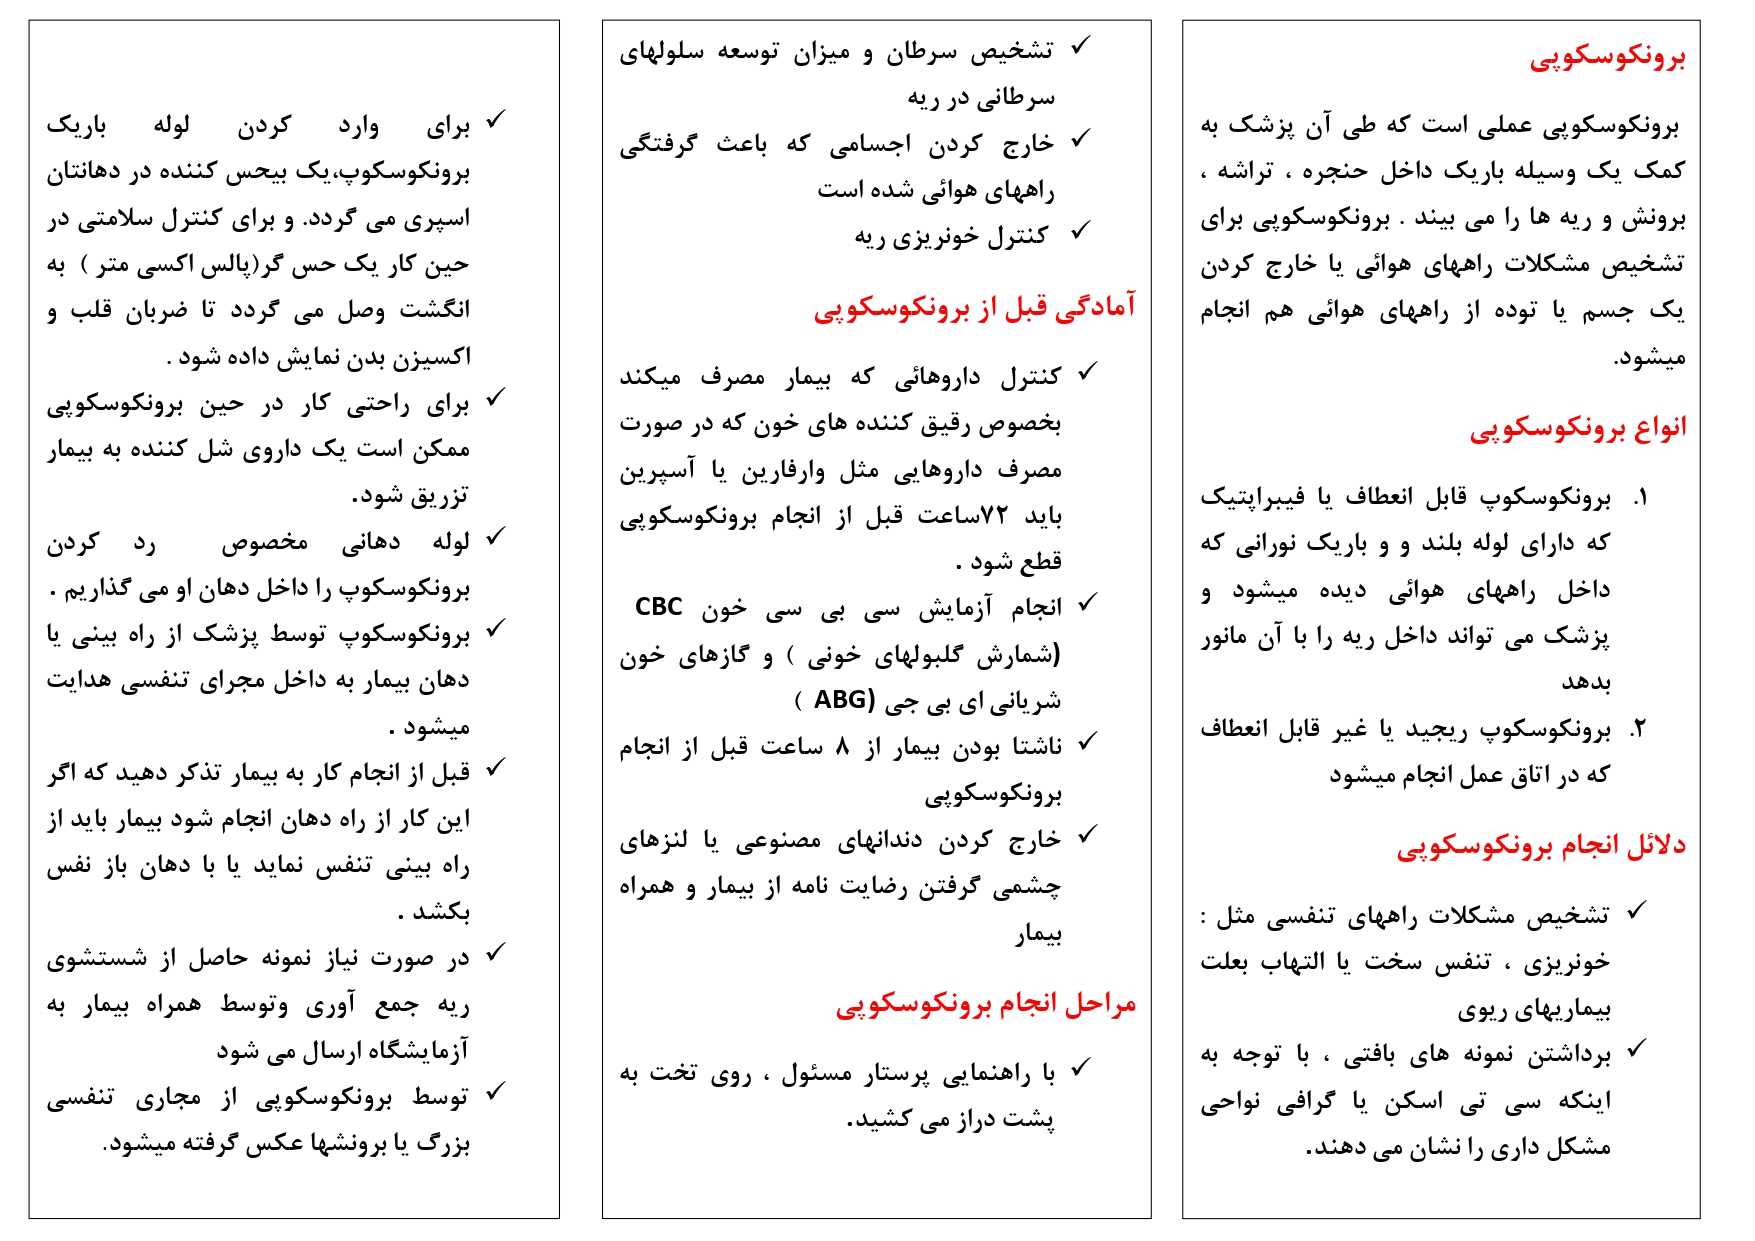 برونکوسکوپی
برونکوسکوپی عملی است که طی آن پزشک به
کمک یک وسیله باریک داخل حنجره ، تراشه ،
برونش و ریه ها را می بیند . برونکوسکوپی برای
تشخیص مشکلات راههای هوائی یا خارج کردن
یک جسم یا توده از راههای هوائی هم انجام
میشود.
انواع برونکوسکوپی
۱. برونکوسکوپ قابل انعطاف یا فیبراپتیک
که دارای لوله بلند و و باریک نورانی که
داخل راههای هوائی دیده میشود و
پزشک می تواند داخل ریه را با آن مانور
بدهد
۲. برونکوسکوپ ریجید یا غیر قابل انعطاف
که در اتاق عمل انجام میشود
دلائل انجام برونکوسکوپی
✓ تشخیص مشکلات راههای تنفسی مثل :
خونریزی ، تنفس سخت یا التهاب بعلت
بیماریهای ریوی
✓ برداشتن نمونه های بافتی ، با توجه به
اینکه سی تی اسکن یا گرافی نواحی
مشکل داری را نشان می دهند.
✓ تشخیص سرطان و میزان توسعه سلولهای
سرطانی در ریه
✓ خارج کردن اجسامی که باعث گرفتگی
راههای هوائی شده است
✓ کنترل خونریزی ریه
آمادگی قبل از برونکوسکوپی
✓ کنترل داروهائی که بیمار مصرف میکند
بخصوص رقیق کننده های خون که در صورت
مصرف داروهایی مثل وارفارین یا آسپرین
باید ۷۲ساعت قبل از انجام برونکوسکوپی
قطع شود .
✓ انجام آزمایش سی بی سی خون CBC
(شمارش گلبولهای خونی ) و گازهای خون
شریانی ای بی جی (ABG )
✓ ناشتا بودن بیمار از ۸ ساعت قبل از انجام
برونکوسکوپی
✓ خارج کردن دندانهای مصنوعی یا لنزهای
چشمی گرفتن رضایت نامه از بیمار و همراه
بیمار
مراحل انجام برونکوسکوپی
✓ با راهنمایی پرستار مسئول ، روی تخت به
پشت دراز می کشید.
✓ برای وارد کردن لوله باریک
برونکوسکوپ،یک بیحس کننده در دهانتان
اسپری می گردد. و برای کنترل سلامتی در
حین کار یک حس گر(پالس اکسی متر ) به
انگشت وصل می گردد تا ضربان قلب و
اکسیزن بدن نمایش داده شود .
✓ برای راحتی کار در حین برونکوسکوپی
ممکن است یک داروی شل کننده به بیمار
تزریق شود.
✓ لوله دهانی مخصوص رد کردن
برونکوسکوپ را داخل دهان او می گذاریم .
✓ برونکوسکوپ توسط پزشک از راه بینی یا
دهان بیمار به داخل مجرای تنفسی هدایت
میشود .
✓ قبل از انجام کار به بیمار تذکر دهید که اگر
این کار از راه دهان انجام شود بیمار باید از
راه بینی تنفس نماید یا با دهان باز نفس
بکشد .
✓ در صورت نیاز نمونه حاصل از شستشوی
ریه جمع آوری وتوسط همراه بیمار به
آزمایشگاه ارسال می شود
✓ توسط برونکوسکوپی از مجاری تنفسی
بزرگ یا برونشها عکس گرفته میشود.